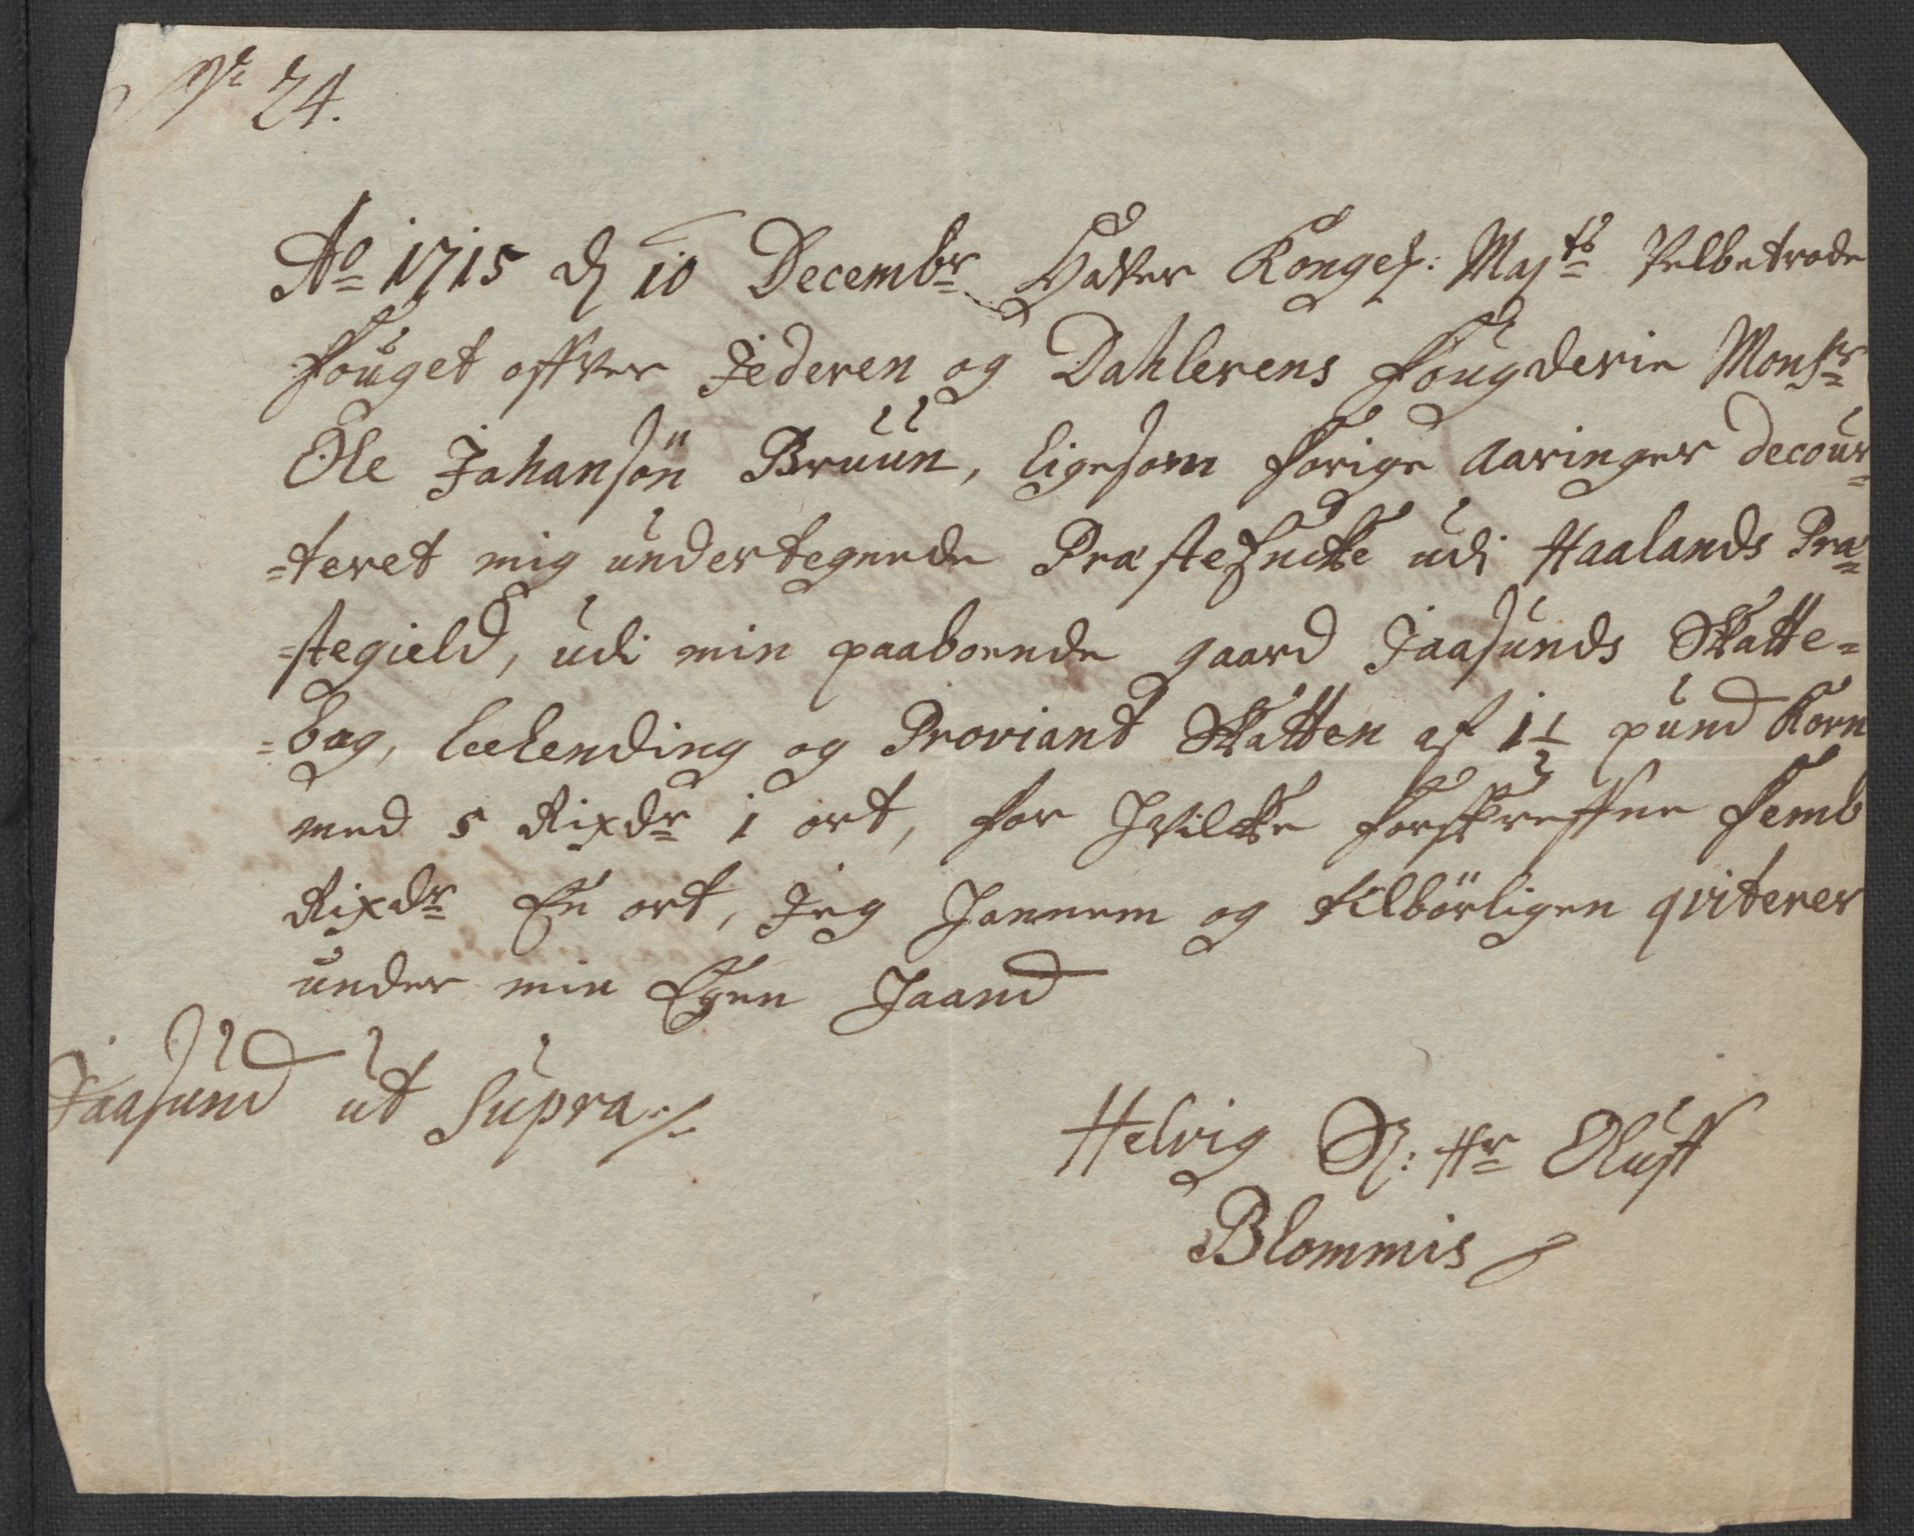 No 24.
Ao 1715 d 10 Decembr Haver Kongel: Majts Velbetrode
Fouget offver Jederen og Dahlerens Fougderie Monsr
Ole Johansøn Bruun, ligesom forige aaringer decour=
=teret mig undertegnede Præste Encke udi Haalands Præ=
=stegield, udi min paaboende gaard Jaasunds Skatte=
=bog, leelending og Proviant Skatten af 1½ pund Korn
med 5 Rixdr 1 ort, for hvilcke forskreffne Femb
Rixdr En ort, Jeg hannem og tilbörligen qviterer
under min Egen haand
Jaasund ut Supra ./.
Helvig Sl: Hr Oluff
Blommis